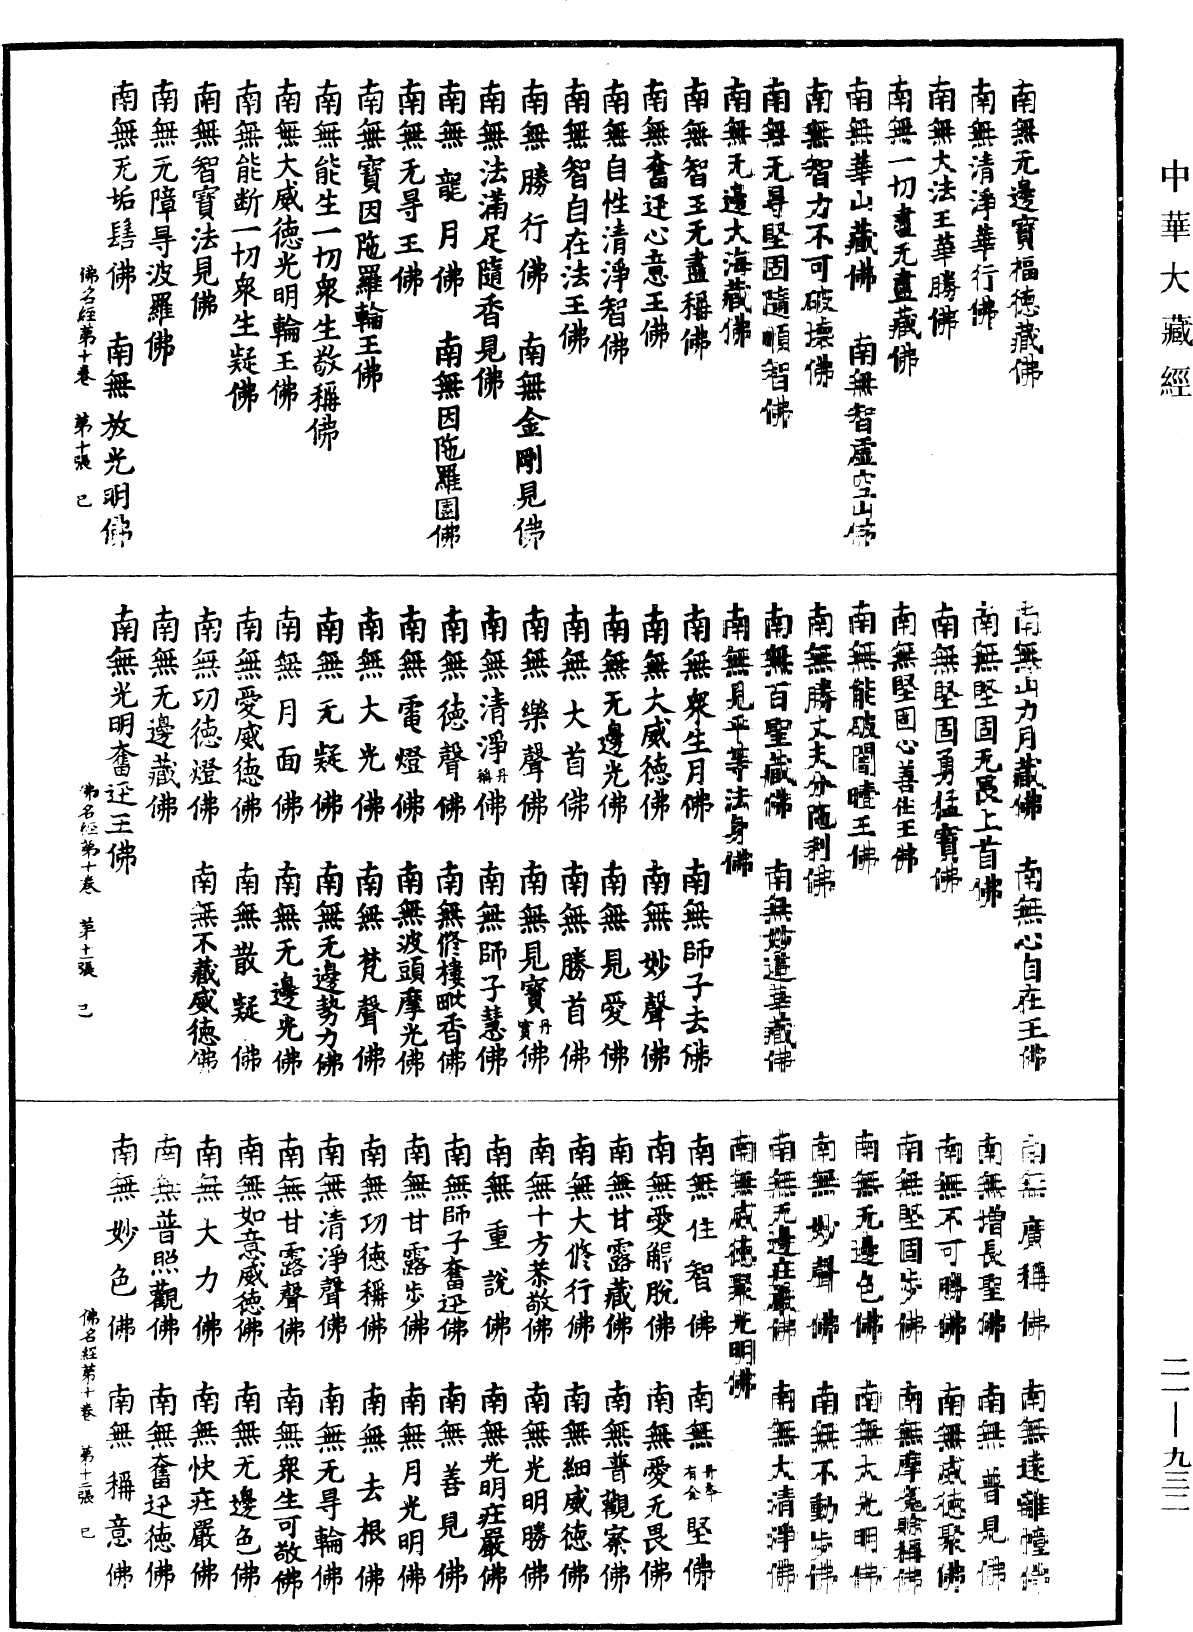 中華大藏經
南無无邊寶福德藏佛
南無清淨華行佛
南無大法王華勝佛
南無一切盡无盡藏佛
南無華山藏佛　南無智虛空山佛
南無智力不可破壞佛
南無无㝵堅固隨順智佛
南無无邊大海藏佛
南無智王无盡稱佛
南無奮迅心意王佛
南無自性清淨智佛
南無智自在法王佛
南無勝行佛　南無金剛見佛
南無法滿足隨香見佛
南無龍月佛　南無因陁羅圍佛
南無无㝵王佛
南無寶因陁羅輪王佛
南無能生一切衆生敬稱佛
南無大威德光明輪王佛
南無能断一切衆生疑佛
南無智寶法見佛
南無无障㝵波羅佛
南無无垢髻佛　南無放光明佛
佛名經第十卷　第十張　已
南無山力月藏佛　南無心自在王佛
南無堅固无畏上首佛
南無堅固勇猛寶佛
南無堅固心善住王佛
南無能破闇曀王佛
南無勝丈夫分陁利佛
南無百聖藏佛　南無妙蓮華藏佛
南無見平等法身佛
南無衆生月佛　南無師子去佛
南無大威德佛　南無妙聲佛
南無无邊光佛　南無見愛佛
南無大首佛　南無勝首佛
南無樂聲佛　南無見寶丹實佛
南無清淨丹稱佛　南無師子慧佛
南無德聲佛　南無修樓毗香佛
南無電燈佛　南無波頭摩光佛
南無大光佛　南無梵聲佛
南無无疑佛　南無无邊勢力佛
南無月面佛　南無无邊光佛
南無愛威德佛　南無散疑佛
南無功德燈佛　南無不藏威德佛
南無无邊藏佛
南無光明奮迅王佛
佛名經第十卷　第十一張　已
南無廣稱佛　南無遠離幢佛
南無增長聖佛　南無普見佛
南無不可勝佛　南無威德聚佛
南無堅固步佛　南無摩㝹賒稱佛
南無无邊色佛　南無大光明佛
南無妙聲佛　南無不動步佛
南無无邊莊嚴佛　南無大清淨佛
南無威德聚光明佛
南無住智佛　南無丹本有全堅佛
南無愛解脫佛　南無愛无畏佛
南無甘露藏佛　南無普觀察佛
南無大修行佛　南無細威德佛
南無十方恭敬佛　南無光明勝佛
南無重說佛　南無光明莊嚴佛
南無師子奮迅佛　南無善見佛
南無甘露步佛　南無月光明佛
南無功德稱佛　南無去根佛
南無清淨聲佛　南無无㝵輪佛
南無甘露聲佛　南無衆生可敬佛
南無如意威德佛　南無无邊色佛
南無大力佛　南無快莊嚴佛
南無普照觀佛　南無奮迅德佛
南無妙色佛　南無稱意佛
佛名經第十卷　第十二張　已
二一—九三二